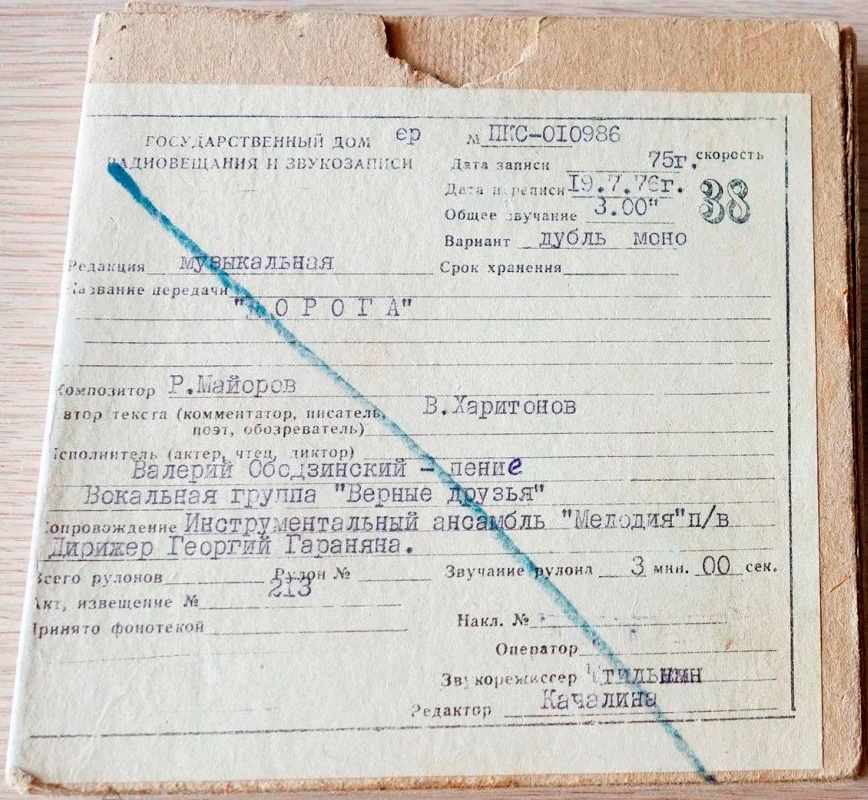 ГОСУДАРСТВЕННЫЙ ДОМ ер
РАДИОВЕЩАНИЯ И ЗВУКОЗАПИСИ
№ ПКС-010986
Дата записи 75г. скорость
Дата переписи 19.7.76г. 38
Общее звучание 3.00"
Вариант дубль моно
Редакция музыкальная Срок хранения
Название передачи
"ДОРОГА"
Композитор Р.Майоров
Автор текста (комментатор, писатель, В.Харитонов
поэт, обозреватель)
Исполнитель (актер, чтец, диктор)
Валерий Ободзинский - пение
Вокальная группа "Верные друзья"
Сопровождение Инструментальный ансамбль "Мелодия" п/в
Дирижер Георгий Гараняна.
Всего рулонов Рулон № Звучание рулона 3 мин. 00 сек.
213
Акт, извещение №
Принято фонотекой Накл. №
Оператор
Звукорежиссер
Редактор Качалина